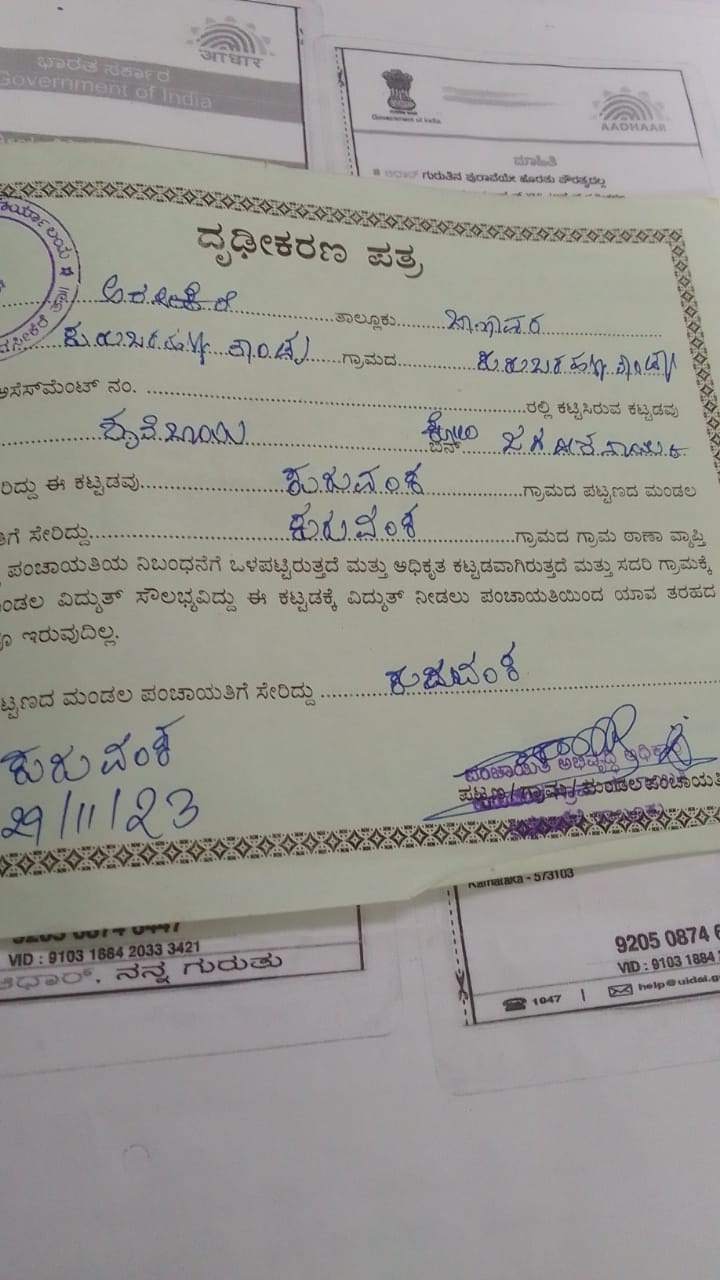 आधार
ಭಾರತ ಸರ್ಕಾರ
Government of India
Government of India
AADHAAR
ಮಾಹಿತಿ
ಆಧಾರ್ ಗುರುತಿನ ಪುರಾವೆಯೇ ಹೊರತು ಪೌರತ್ವದಲ್ಲ
ದೃಢೀಕರಣ ಪತ್ರ
ಅರಸೀಕೆರೆ ತಾಲ್ಲೂಕು ಬಾಣಾವರ
ಗ್ರಾಮದ
ಅಸೆಸ್‌ಮೆಂಟ್ ನಂ. ರಲ್ಲಿ ಕಟ್ಟಿಸಿರುವ ಕಟ್ಟಡವು
ಬಿನ್
ರಿದ್ದು ಈ ಕಟ್ಟಡವು ಕುರುವಂಕ ಗ್ರಾಮದ ಪಟ್ಟಣದ ಮಂಡಲ
ತಿಗೆ ಸೇರಿದ್ದು ಕುರುವಂಕ ಗ್ರಾಮದ ಗ್ರಾಮ ಠಾಣಾ ವ್ಯಾಪ್ತಿ
ಪಂಚಾಯತಿಯ ನಿಬಂಧನೆಗೆ ಒಳಪಟ್ಟಿರುತ್ತದೆ ಮತ್ತು ಅಧಿಕೃತ ಕಟ್ಟಡವಾಗಿರುತ್ತದೆ ಮತ್ತು ಸದರಿ ಗ್ರಾಮಕ್ಕೆ
ಂಡಲ ವಿದ್ಯುತ್ ಸೌಲಭ್ಯವಿದ್ದು ಈ ಕಟ್ಟಡಕ್ಕೆ ವಿದ್ಯುತ್ ನೀಡಲು ಪಂಚಾಯತಿಯಿಂದ ಯಾವ ತರಹದ
ಇರುವುದಿಲ್ಲ.
ಟ್ಟಣದ ಮಂಡಲ ಪಂಚಾಯತಿಗೆ ಸೇರಿದ್ದು ಕುರುವಂಕ
ಕುರುವಂಕ
29/11/23
ಪಂಚಾಯತಿ ಅಭಿವೃದ್ಧಿ ಅಧಿಕಾರಿ
ಪಟ್ಟಣ/ಗ್ರಾಮ/ಮಂಡಲ ಪಂಚಾಯತಿ
Karnataka - 573103
VID : 9103 1884 2033 3421
ಆಧಾರ್, ನನ್ನ ಗುರುತು
9205 0874 6
VID : 9103 1884
1947 | help@uidai.g